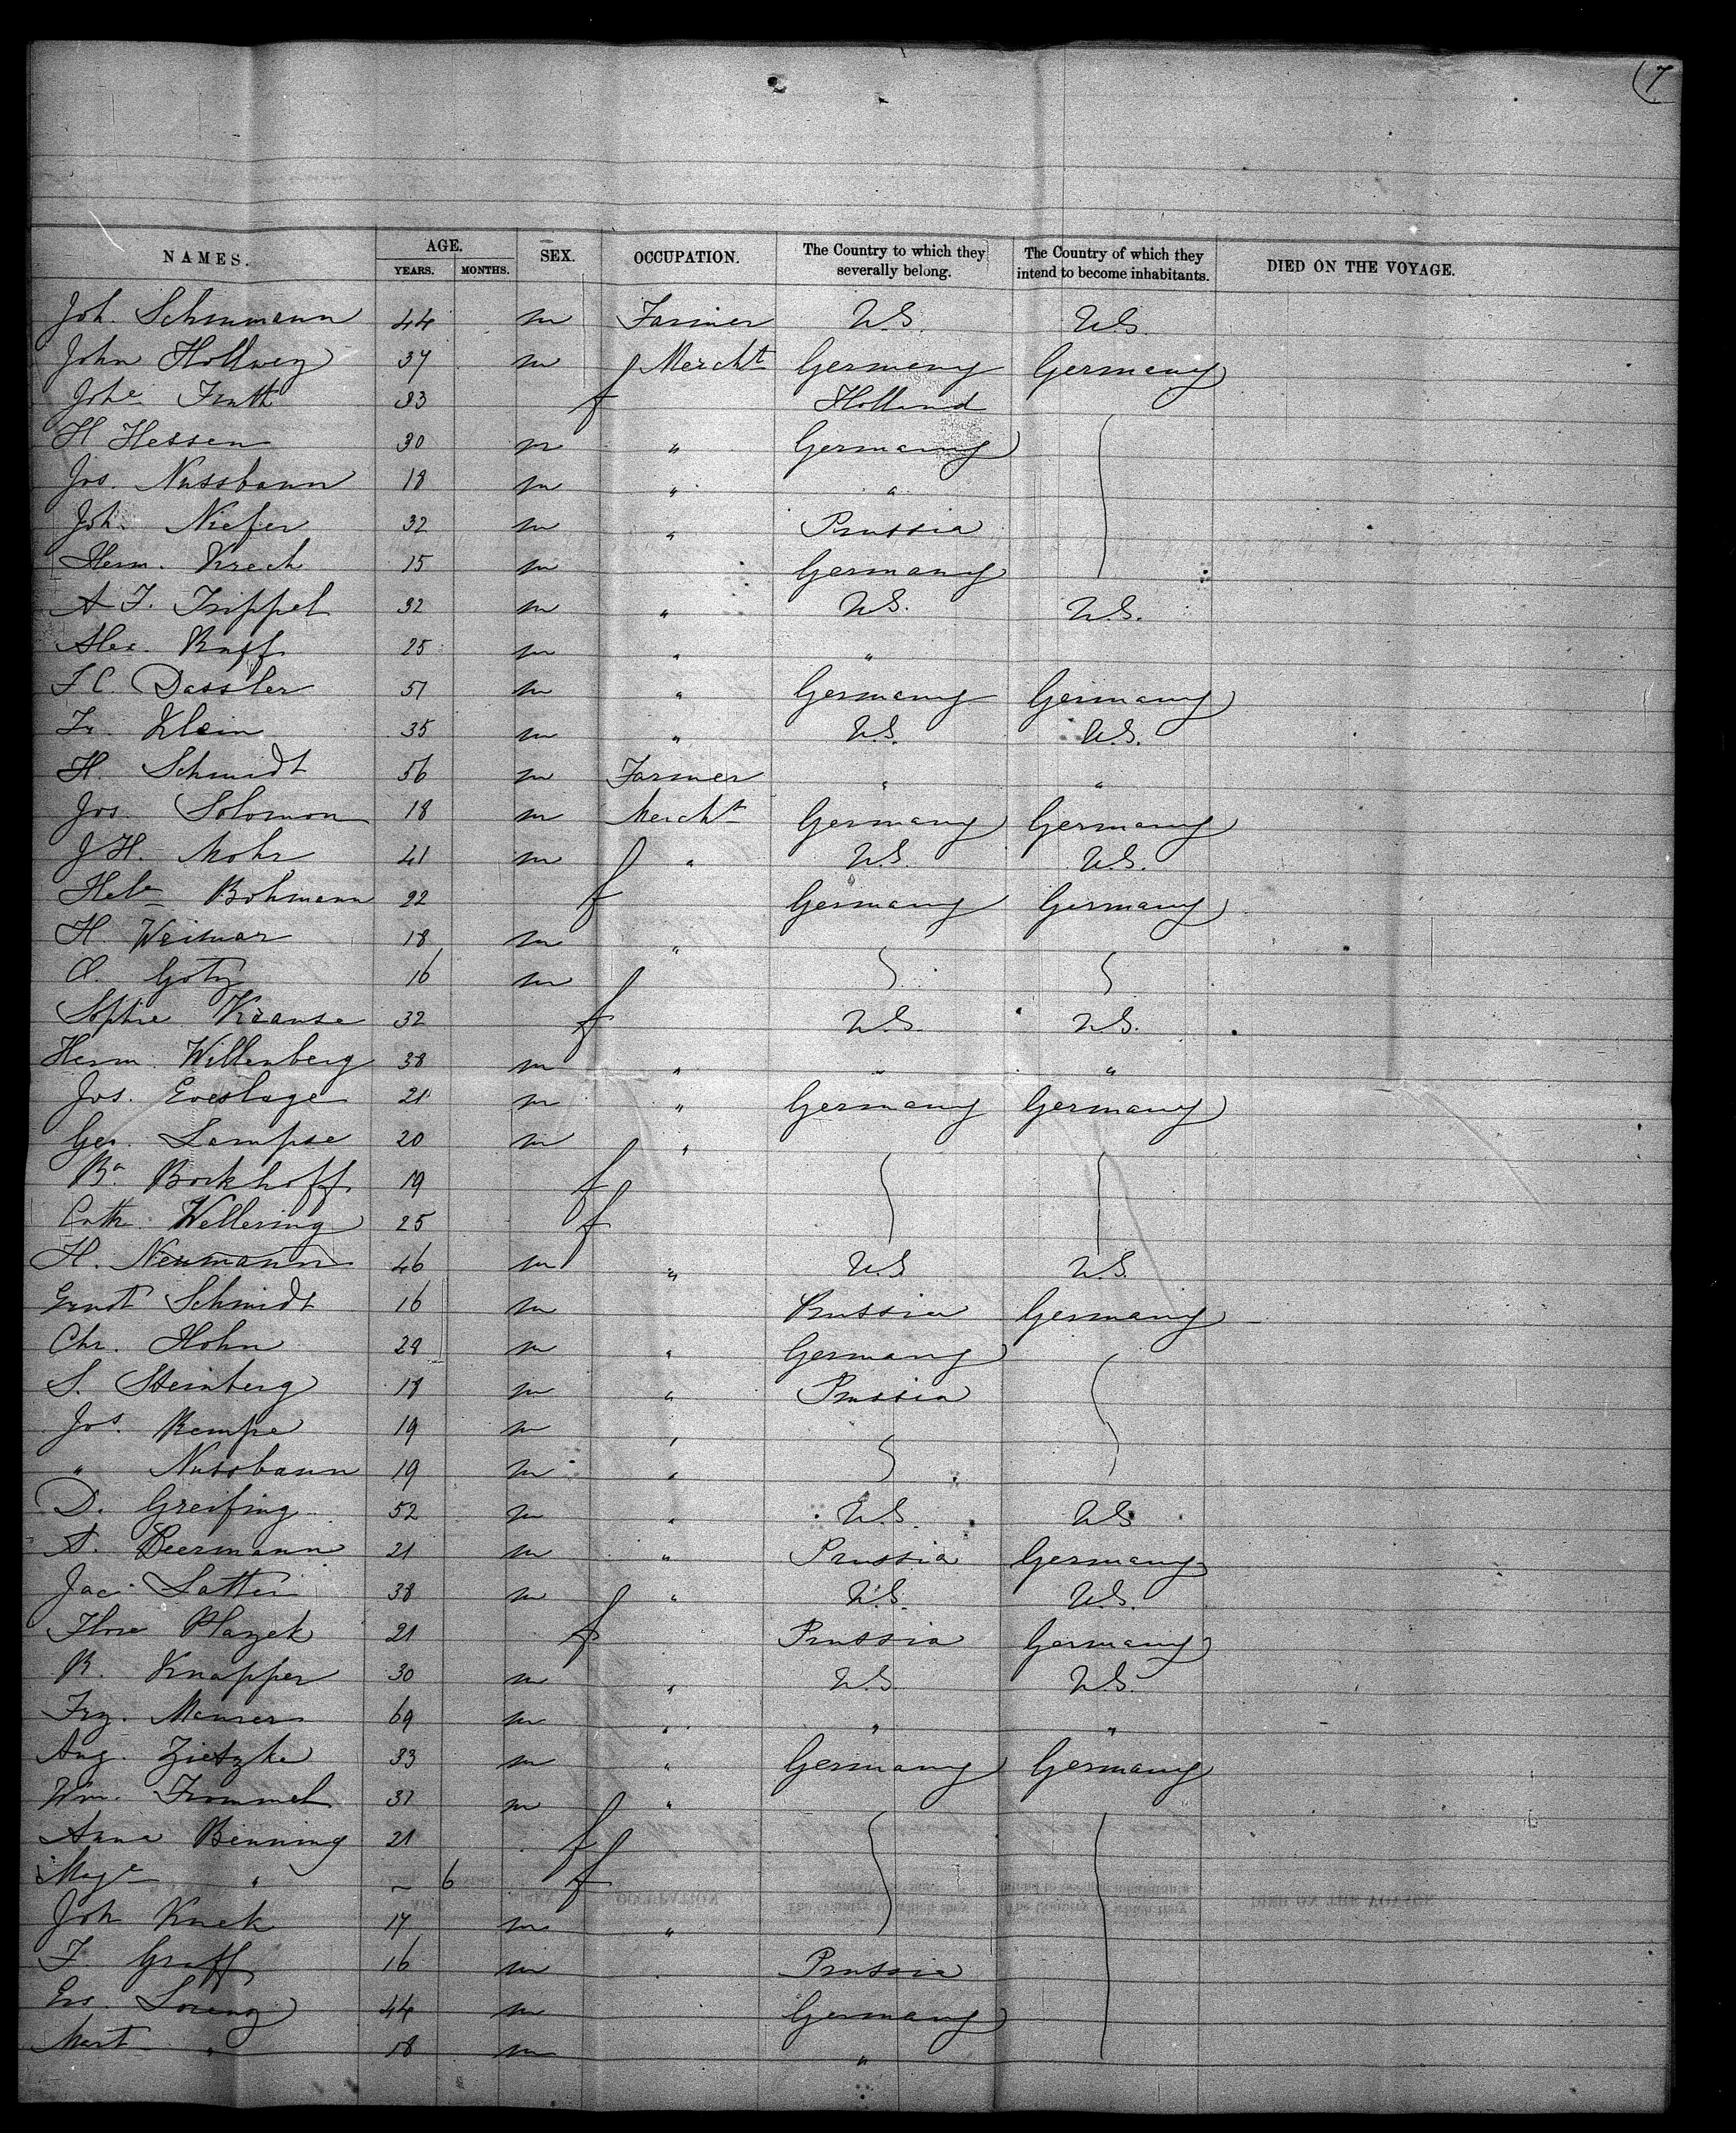 7
NAMES. AGE. SEX. OCCUPATION. The Country to which they severally belong. The Country of which they intend to become inhabitants. DIED ON THE VOYAGE.
YEARS. MONTHS.
Joh. Schumann 44 m Farmer U.S. U.S.
John Hollweg 37 m Mercht Germany Germany
Johe Fruth 33 f Holland
H Hessen 30 m " Germany
Jos. Nussbaum 18 m " "
Joh. Niefer 32 m " Prussia
Herm. Krech 15 m Germany
A F. Trippel 32 m " U.S. U.S.
Alex. Ruff 25 m " "
F C. Dassler 51 m " Germany Germany
Fr. Klein 35 m " U.S. U.S.
H. Schmidt 56 m Farmer " "
Jos. Solomon 18 m Mercht Germany Germany
J H. Mohr 41 m " U.S. U.S.
Hele Bohmann 22 f Germany Germany
H. Weimar 18 m "
O. Götz 16 m
Sophie Krause 32 f U.S. U.S.
Herm. Willenberg 38 m " " "
Jos. Eveslage 21 m " Germany Germany
Geo. Lampse 20 m "
Ba. Borkhoff 19 f
Cath. Wellering 25 f
H. Neumann 46 m " U.S. U.S.
Ernst Schmidt 16 m Prussia Germany
Chr. Hohn 28 m " Germany
S. Steinberg 18 m " Prussia
Jos. Rempe 19 m "
" Nussbaum 19 m "
D. Greifing 52 m " U.S. U.S.
A. Beermann 21 m " Prussia Germany
Jac. Satter 38 m " U.S. U.S.
Flore Plazek 21 f Prussia Germany
R. Knapper 30 m " U.S. U.S.
Frz. Maurer 69 m " " "
Aug. Zietzke 33 m " Germany Germany
Wm. Frommel 37 m "
Anna Benning 21 f
" 6 f
Joh Knek 17 m "
F. Graff 16 m Prussia
Lorenz 44 m Germany
Mart " 18 m "